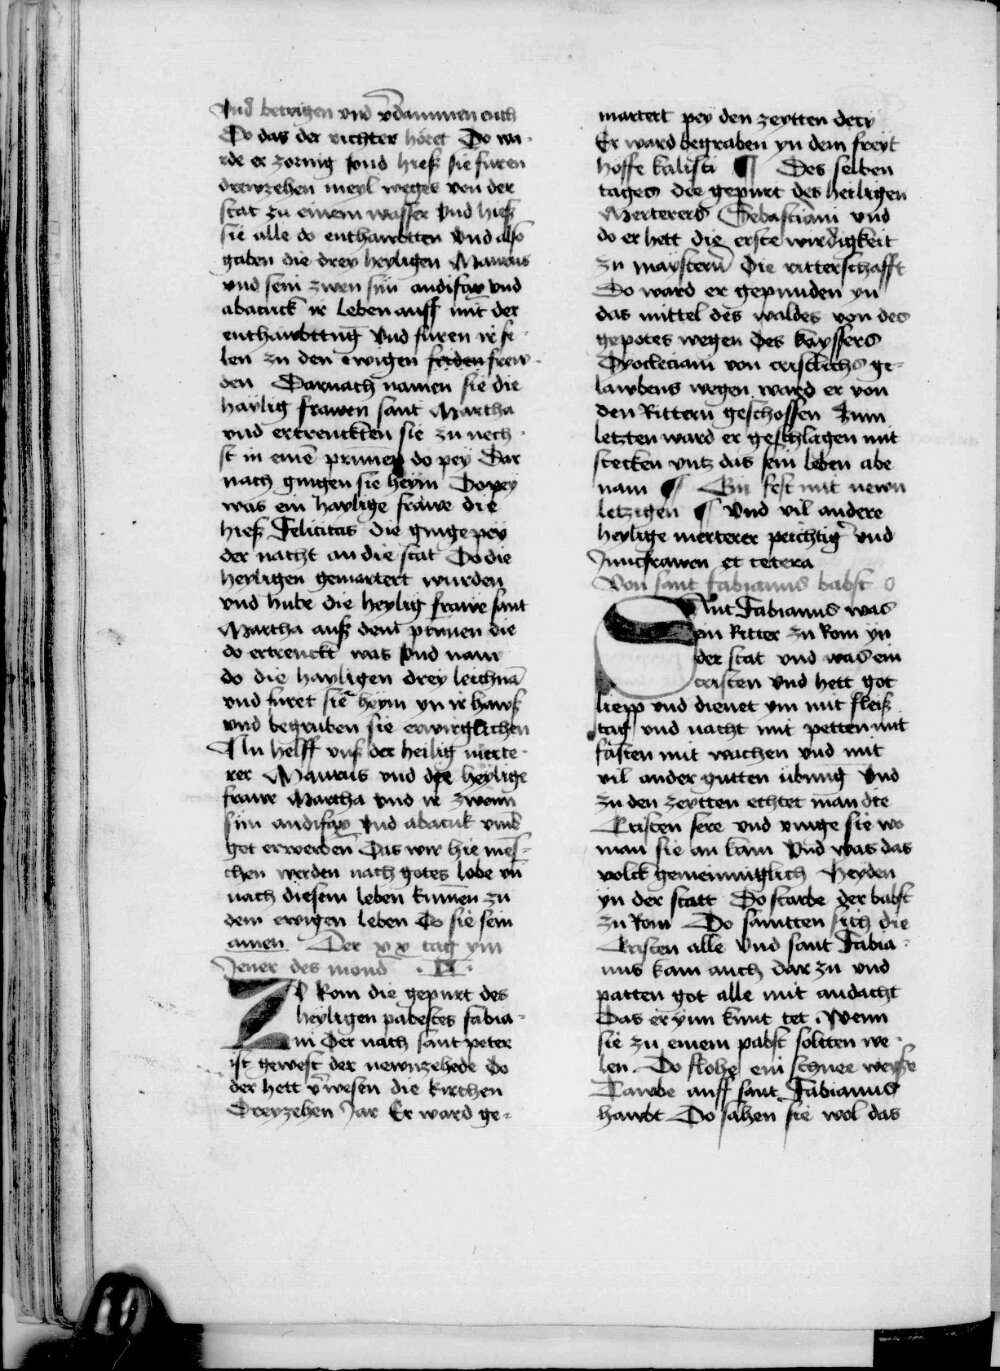 Vnd betrigen vnd v̄dammen euch
Do das der richter höret Do wa-
rde er zornig vnd hieß sie furen
dreyzehen meyl weges von der
stat zu einem wasser vnd hieß
sie alle do enthawbtten Vnd also
gaben die drey heyligen Maurus
vnd sein zwen sün audifax vnd
abacuck ir leben auff mit der
enthawbttung Vnd furen ir se-
len zu den ewigen freden frew-
den Darnach namen sie die
haylig frawen sant Martha
vnd ertrenckten sie zu nech-
st in eine prunen do pey Dar
nach gingen sie heym Dopey
was ein haylige frawe die
hieß Felicitas die ginge pey
der nacht an die stat Do die
heyligen gemartert wurden
vnd hube die heylig frawe sant
Martha auß dem prunen die
do ertrenckt was Vnd nam
do die hayligen drey leichnā
vnd furet sie heym yn ir hawß
vnd begruben sie erwirglichen
Nu helff vnß der heilig merte-
rer Maurus vnd die heylige
frawe Martha vnd ir zwenn
sün audifax vnd abacuk vmb
got erwerben Das wir hie men-
schen werden nach gotes lobe vn̄
nach diesem leben kumen zu
dem ewigen leben Do sie sein
amen Der xx tag ym
Jener des mond · IX ·
Zu Rom die gepurt des
heyligen pabestes fabia-
ni Der nach sant peter
ist gewest der newnzehede Do
der hett v̄wesen die kirchen
Dreyzehen Jar Er ward ge-
martert pey den zeytten decy
Er ward begraben yn dem freyt
hoffe kalisti ¶ Des selben
tages die gepurt des heiligen
Merterers Sebastiani vnd
do er hett die erste wirdigkeit
zu maystern Die ritterschafft
Do ward er gepunden yn
das mittel des waldes von des
gepotes wegen Des kayssers
Dyocleciani von cristlichs ge-
lawbens wegen ward er von
den Rittern geschossen Zum
letzten ward er geschlagen mit
stecken vntz das sein leben abe
nam ¶ Ein fest mit newn
letzigen ¶ Vnd vil andere
heylige merterer peichtiger vnd
Junckfrawen et cetera
Von sant fabianus babst
Sant Fabianus was
ein Ritter zu Rom yn
der stat vnd was ein
cristen Vnd hett got
liepp vnd dienet ym mit fleiß
tag vnd nacht mit petten mit
fasten mit wachen vnd mit
vil ander gutten übung Vnd
zu den zeytten echtet man die
Cristen sere vnd vinge sie wo
man sie an kam Vnd was das
volck gemeinniglich Heyden
yn der statt Do starbe der babst
zu Rom Do samtten sich die
Cristen alle Vnd sant Fabia-
nus kam auch dar zu vnd
patten got alle mit andacht
Das er ynn kunt tet Wenn
sie zu einem pabst soltten we-
len Do flohe ein schnee weysse
Tawbe auff sant Fabianus
hawbt Do sahen sie wol das